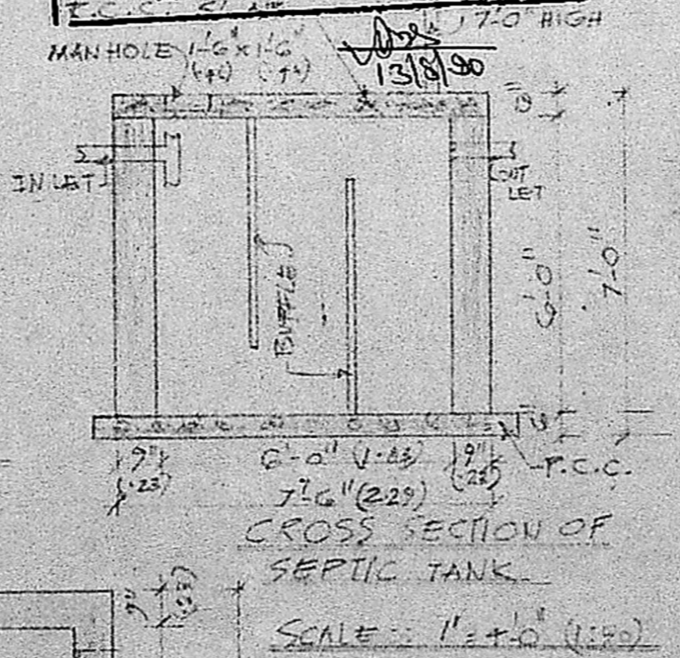 7'-0" HIGH
MANHOLE 1'-6" x 1'-6"
13/8/90
INLET
OUT
LET
BUFFLE
6'-0"
7'-0"
9" 6'-0" (1.83) 9"
(.23) 7'-6" (2.29) (.23)
P.C.C.
CROSS SECTION OF
SEPTIC TANK
9"
SCALE :- 1" = 4'-0"